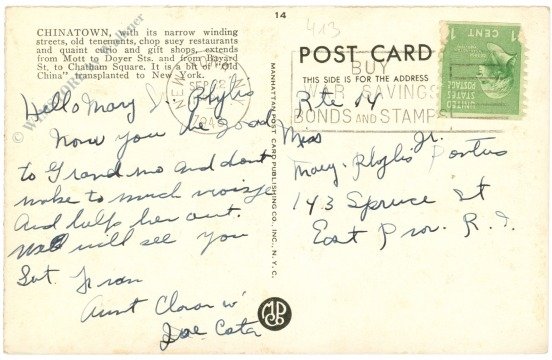 14
413
CHINATOWN, with its narrow winding
streets, old tenements, chop suey restaurants
and quaint curio and gift shops, extends
from Mott to Doyer Sts. and from Bayard
St. to Chatham Square. It is a bit of "Old
China" transplanted to New York.
POST CARD
THIS SIDE IS FOR THE ADDRESS
1 CENT 1
UNITED
STATES
POSTAGE
NEW
SEP
194
BUY
WAR SAVINGS
BONDS AND STAMPS
MANHATTAN POST CARD PUBLISHING CO., INC., N. Y. C.
Hello Mary Phylis
Now you be good
to Grandma and dont
make to much noise
And help her out.
will see you
Sat.
Aunt Clara
Joe
Rte 14
Miss
Mary Phylis Jr.
143 Spruce St
East Prov. R. I.